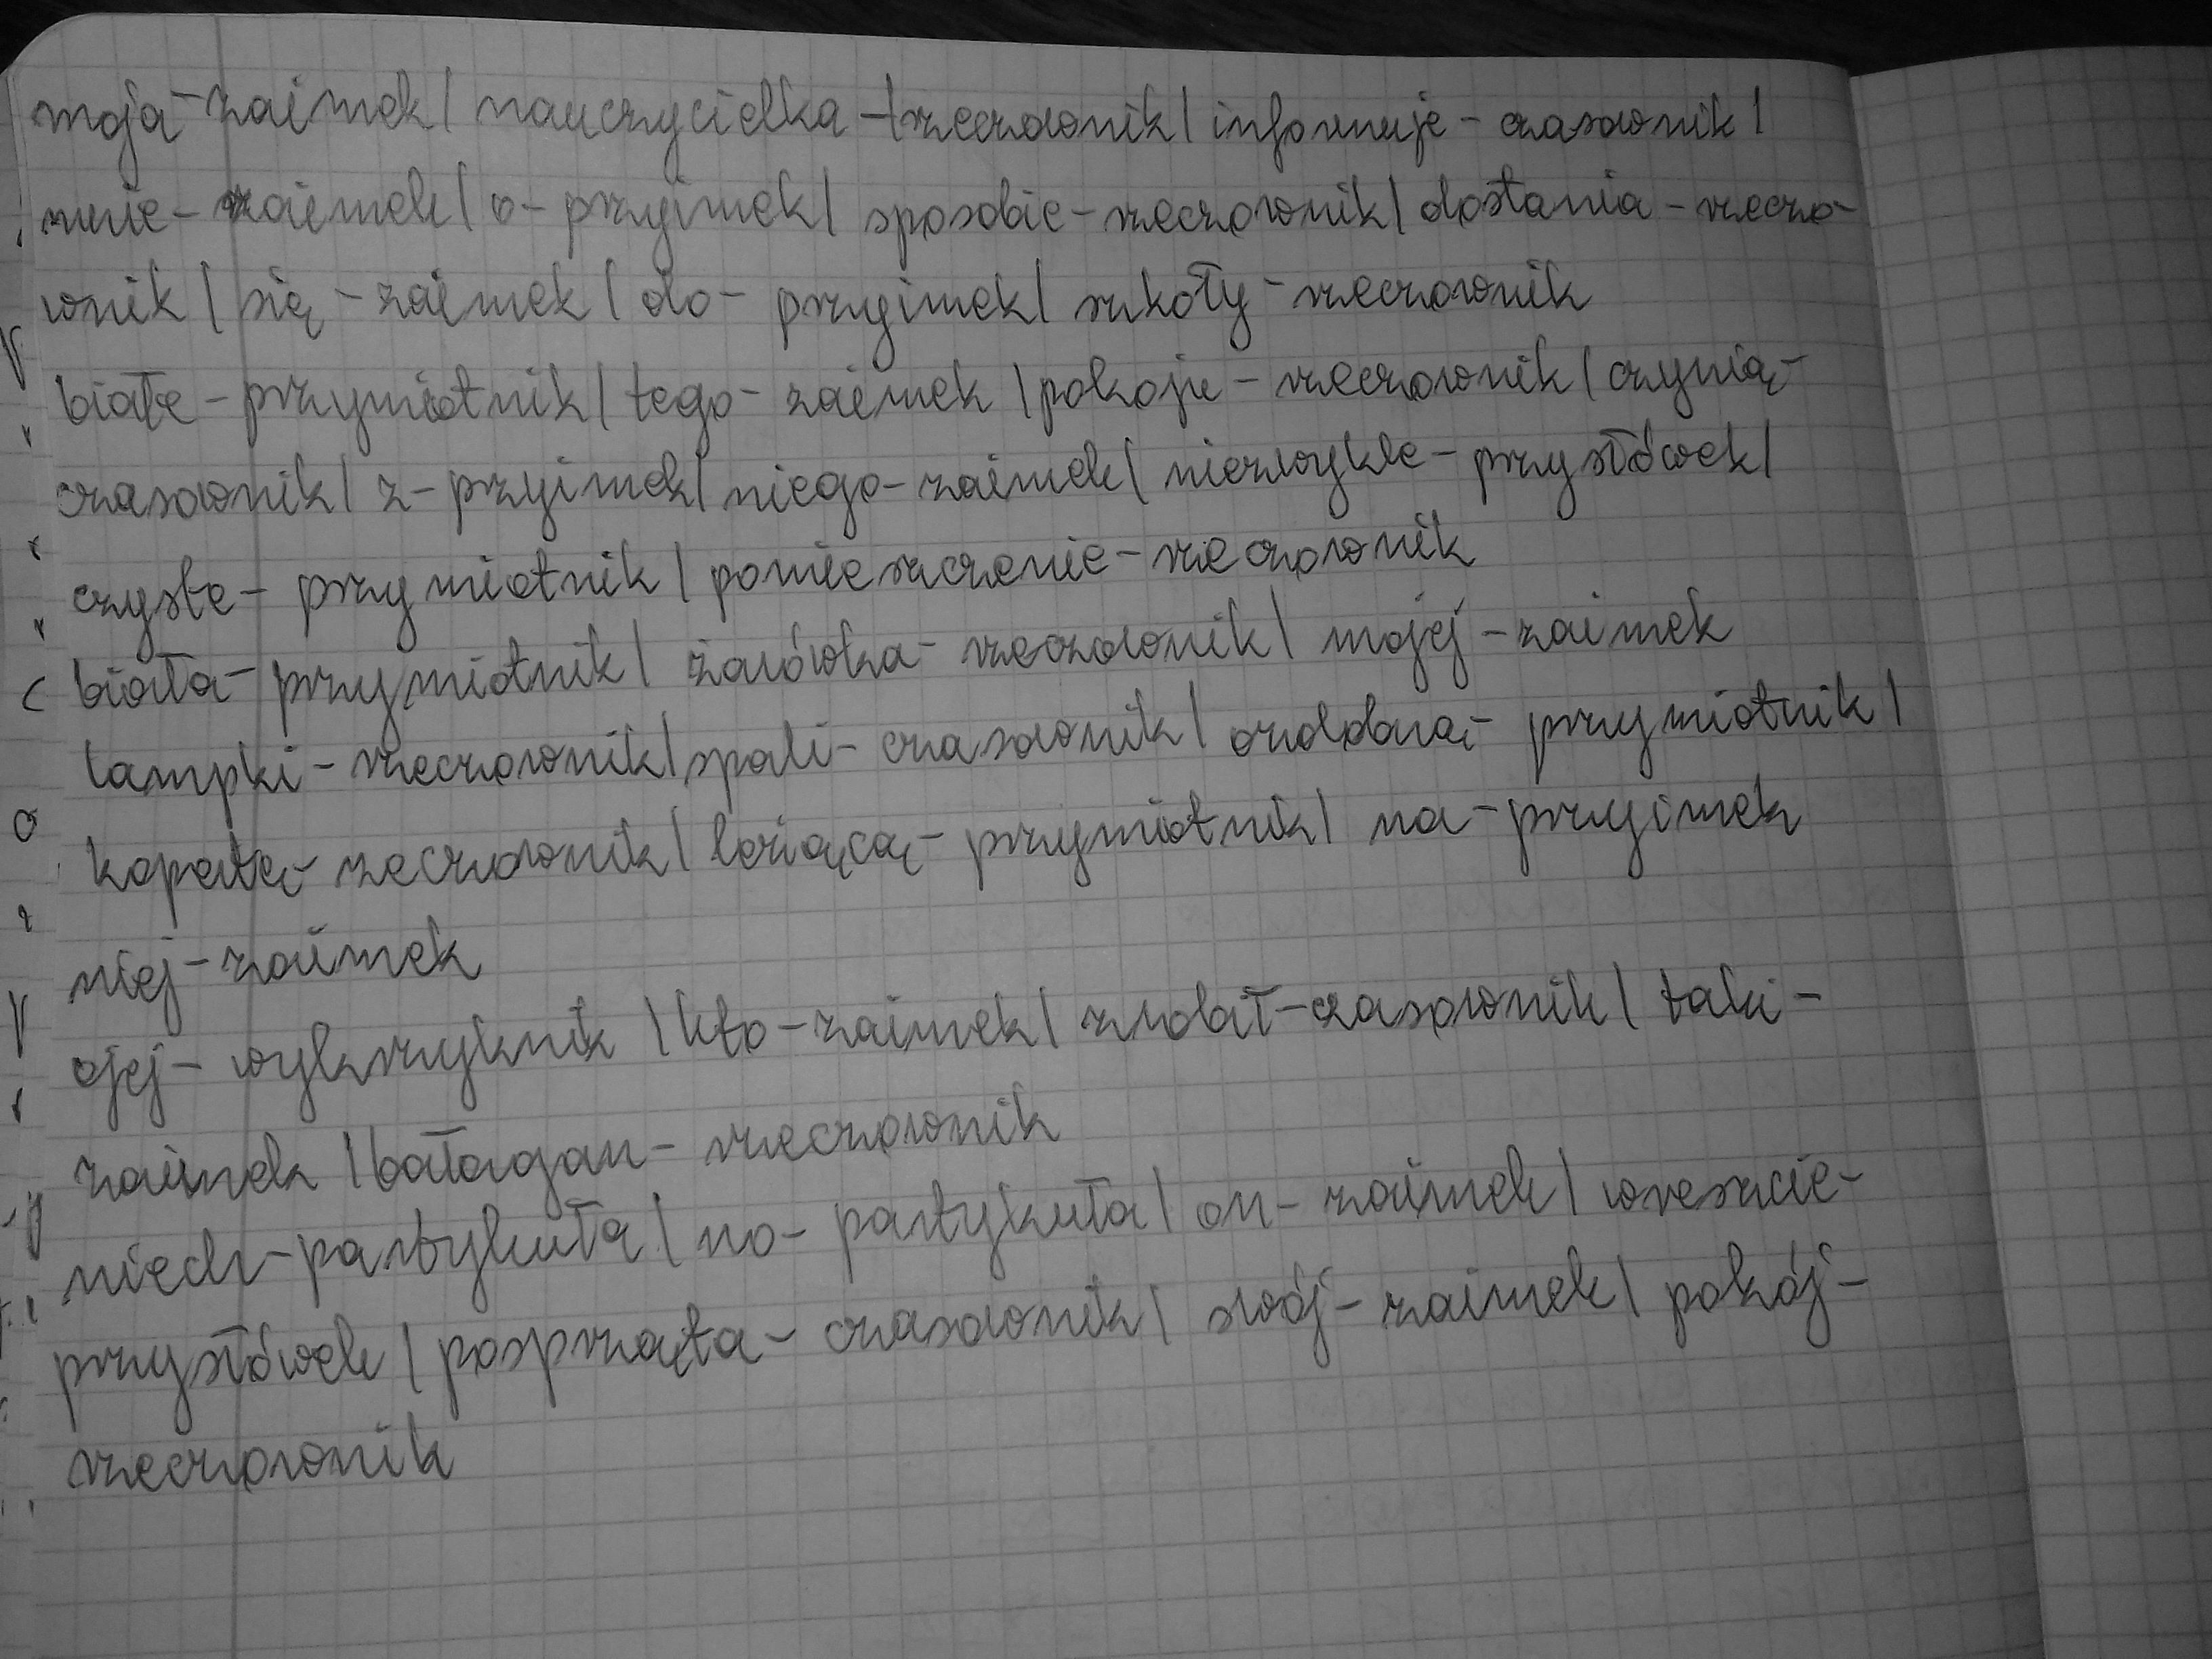 moja - zaimek | nauczycielka - rzeczownik | informuje - czasownik |
mnie - zaimek | o - przyimek | sposobie - rzeczownik | dostania - rzeczo-
wnik | się - zaimek | do - przyimek | szkoły - rzeczownik
białe - przymiotnik | tego - zaimek | pokoju - rzeczownik | czynią -
czasownik | z - przyimek | niego - zaimek | niezwykle - przysłówek |
czyste - przymiotnik | pomieszczenie - rzeczownik
biała - przymiotnik | żarówka - rzeczownik | mojej - zaimek
lampki - rzeczownik | spali - czasownik | ozdobną - przymiotnik |
kopertę - rzeczownik | leżącą - przymiotnik | na - przyimek
niej - zaimek
ojej - wykrzyknik | kto - zaimek | zrobił - czasownik | taki -
zaimek | bałagan - rzeczownik
niech - partykuła | no - partykuła | on - zaimek | wreszcie -
przysłówek | posprząta - czasownik | swój - zaimek | pokój -
rzeczownik